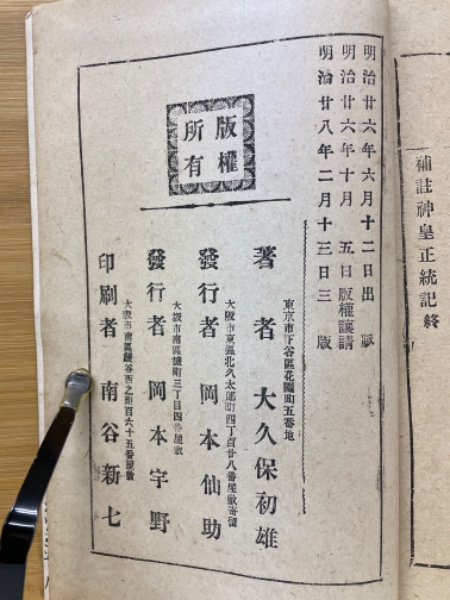 補註神皇正統記終
明治廿六年六月十二日出版
明治廿六年十月五日版權讓請
明治廿八年二月十三日三版
版權
所有
東京市下谷區花園町五番地
著者 大久保初雄
大阪市東區北久太郎町四丁百廿八番屋敷寄留
發行者 岡本仙助
大阪市南區 三丁目四番屋敷
發行者 岡本宇野
大阪市南區 谷西之町百六十五番屋敷
印刷者 南谷新七